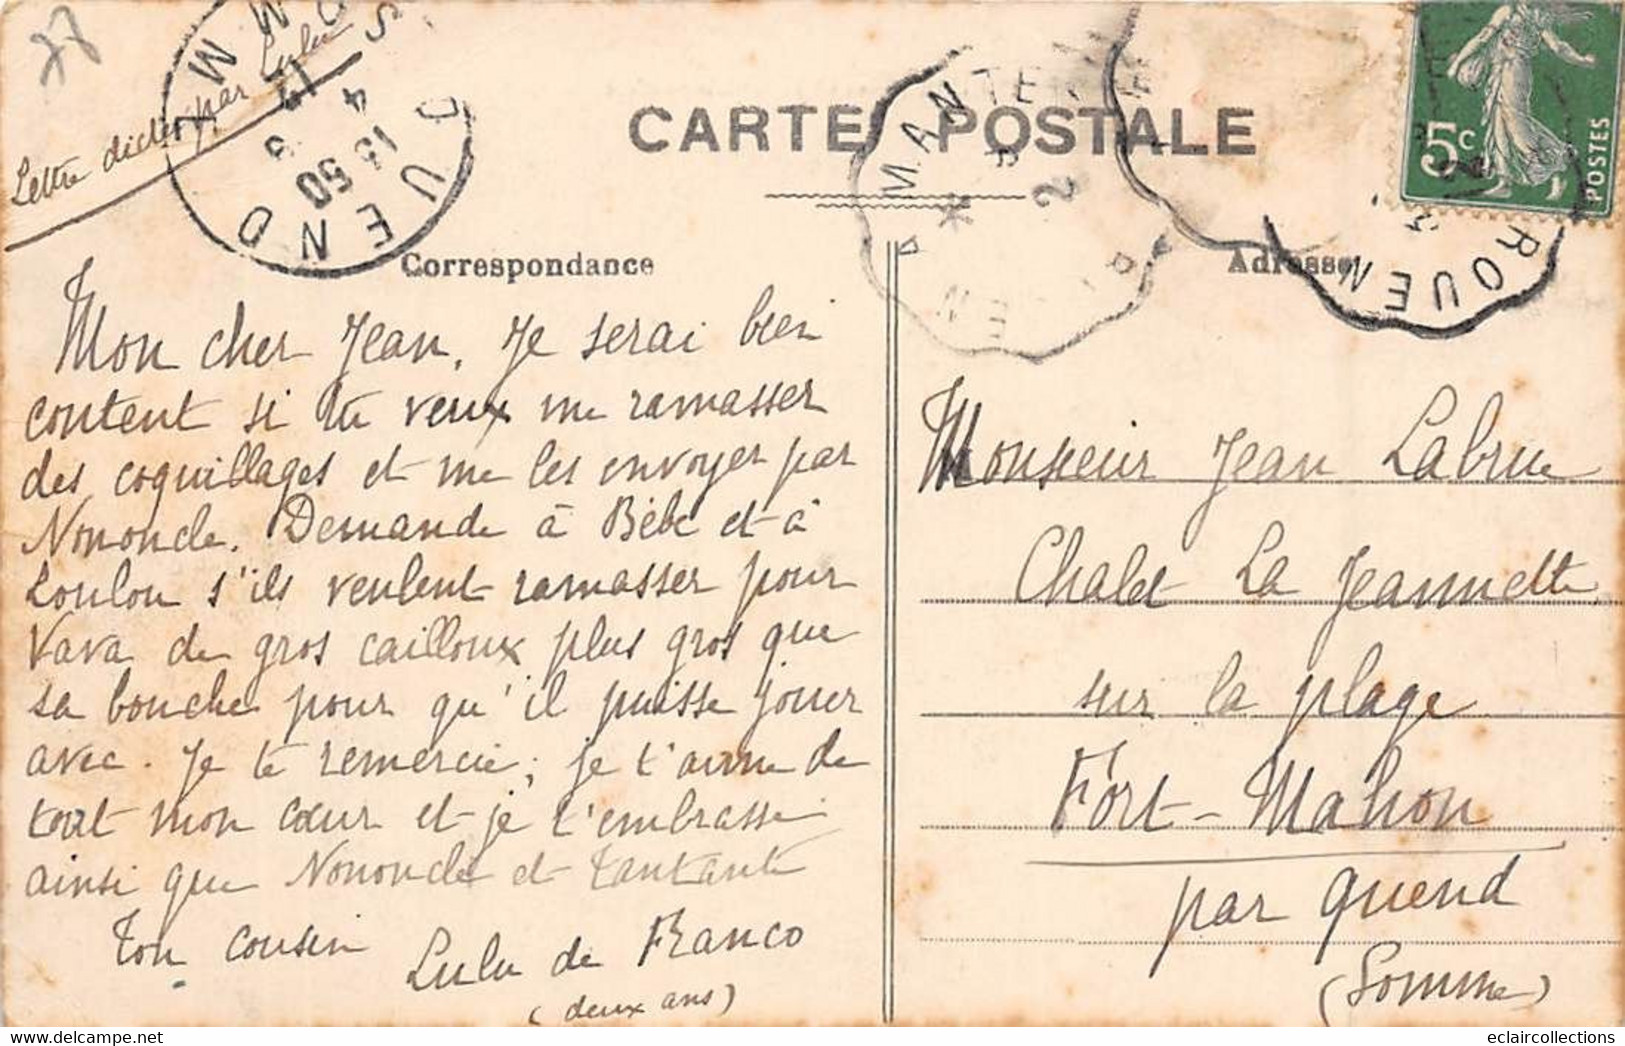 78
Lettre dictée par Lulu
CARTE POSTALE
Correspondance
Adresse
5c
POSTES
MANTE
ROUEN
QUEND
SOMME
15 50
4 9
Mon cher Jean, Je serai bien
content si tu veux me ramasser
des coquillages et me les envoyer par
Nononcle. Demande à Bébé et à
Loulou s'ils veulent ramasser pour
Vava de gros cailloux plus gros que
sa bouche pour qu'il puisse jouer
avec. Je te remercie; je t'aime de
tout mon cœur et je t'embrasse
ainsi que Nononcle et Tantante
Ton cousin
Lulu de Franco
(deux ans)
Monsieur Jean Labrue
Chalet La Jeannette
sur la plage
Fort-Mahon
par Quend
(Somme)
eclaircollections